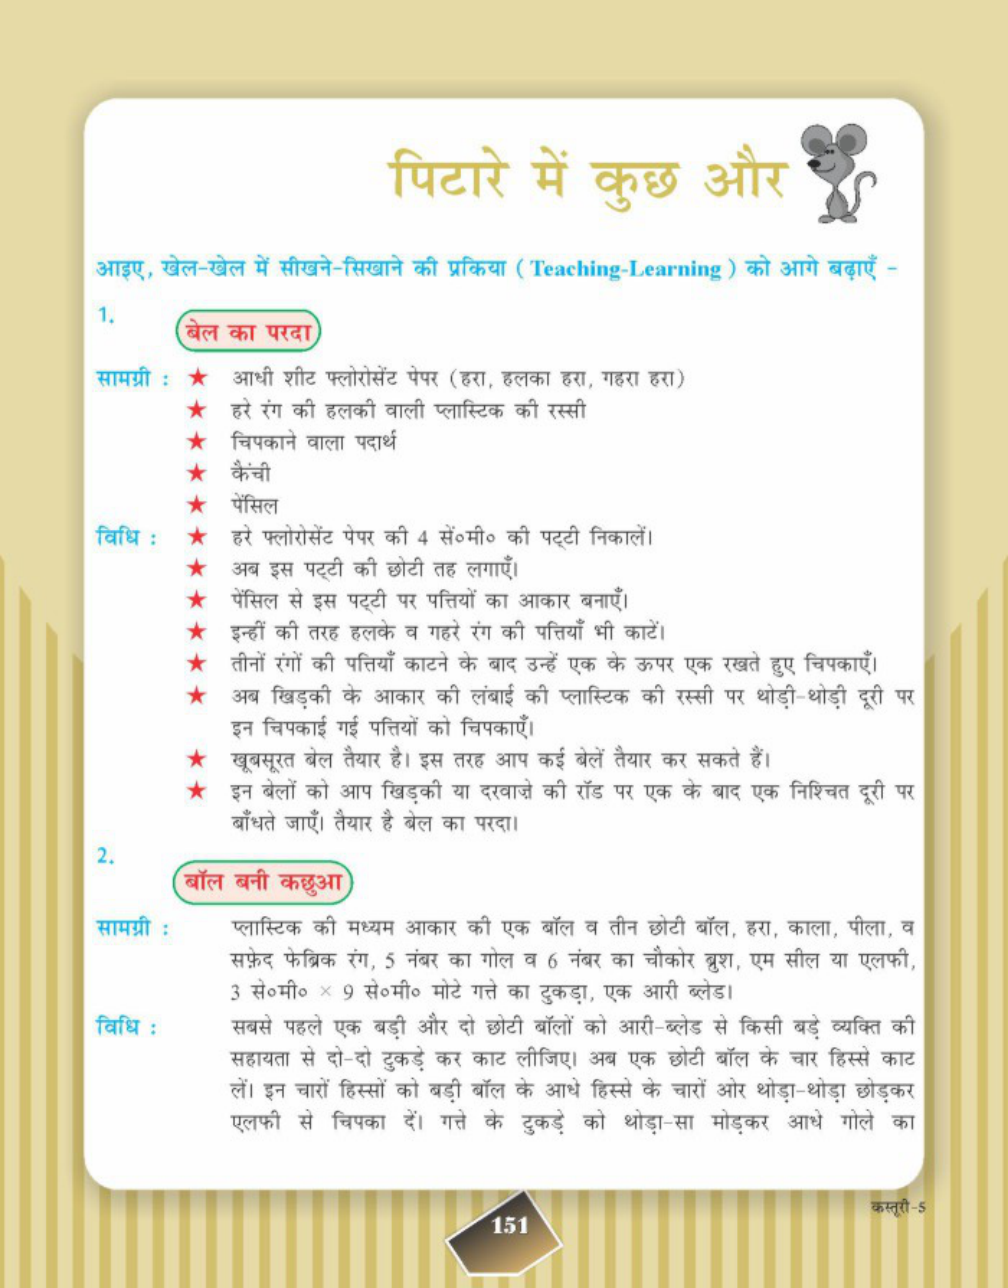 पिटारे में कुछ और
आइए, खेल-खेल में सीखने-सिखाने की प्रकिया ( Teaching-Learning ) को आगे बढ़ाएँ -
1.
बेल का परदा
सामग्री : ★ आधी शीट फ्लोरोसेंट पेपर (हरा, हलका हरा, गहरा हरा)
★ हरे रंग की हलकी वाली प्लास्टिक की रस्सी
★ चिपकाने वाला पदार्थ
★ कैंची
★ पेंसिल
विधि : ★ हरे फ्लोरोसेंट पेपर की 4 सें०मी० की पट्टी निकालें।
★ अब इस पट्टी की छोटी तह लगाएँ।
★ पेंसिल से इस पट्टी पर पत्तियों का आकार बनाएँ।
★ इन्हीं की तरह हलके व गहरे रंग की पत्तियाँ भी काटें।
★ तीनों रंगों की पत्तियाँ काटने के बाद उन्हें एक के ऊपर एक रखते हुए चिपकाएँ।
★ अब खिड़की के आकार की लंबाई की प्लास्टिक की रस्सी पर थोड़ी-थोड़ी दूरी पर
इन चिपकाई गई पत्तियों को चिपकाएँ।
★ खूबसूरत बेल तैयार है। इस तरह आप कई बेलें तैयार कर सकते हैं।
★ इन बेलों को आप खिड़की या दरवाज़े की रॉड पर एक के बाद एक निश्चित दूरी पर
बाँधते जाएँ। तैयार है बेल का परदा।
2.
बॉल बनी कछुआ
सामग्री : प्लास्टिक की मध्यम आकार की एक बॉल व तीन छोटी बॉल, हरा, काला, पीला, व
सफ़ेद फेब्रिक रंग, 5 नंबर का गोल व 6 नंबर का चौकोर ब्रुश, एम सील या एलफी,
3 से०मी० × 9 से०मी० मोटे गत्ते का टुकड़ा, एक आरी ब्लेड।
विधि : सबसे पहले एक बड़ी और दो छोटी बॉलों को आरी-ब्लेड से किसी बड़े व्यक्ति की
सहायता से दो-दो टुकड़े कर काट लीजिए। अब एक छोटी बॉल के चार हिस्से काट
लें। इन चारों हिस्सों को बड़ी बॉल के आधे हिस्से के चारों ओर थोड़ा-थोड़ा छोड़कर
एलफी से चिपका दें। गत्ते के टुकड़े को थोड़ा-सा मोड़कर आधे गोले का
कस्तूरी-5
151